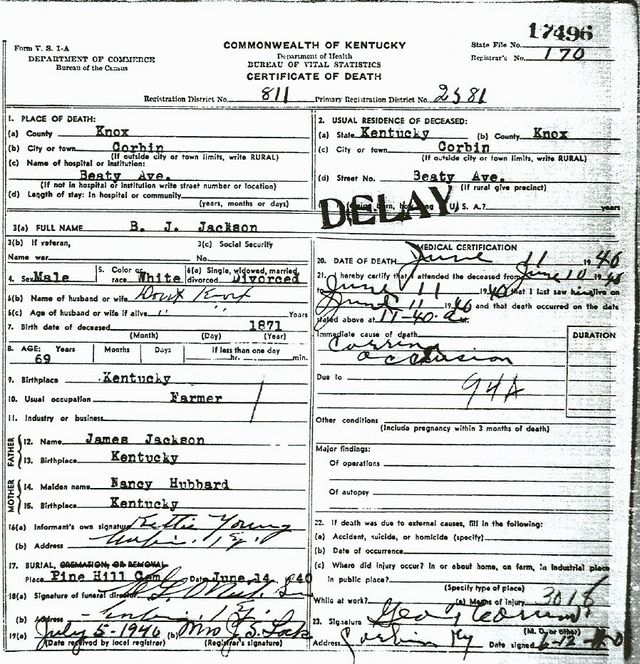 17496
Form V. S. 1-A
DEPARTMENT OF COMMERCE
Bureau of the Census
COMMONWEALTH OF KENTUCKY
Department of Health
BUREAU OF VITAL STATISTICS
CERTIFICATE OF DEATH
State File No.
Registrar's No. 170
Registration District No. 811 Primary Registration District No. 2381
1. PLACE OF DEATH:
(a) County Knox
(b) City or town Corbin
(If outside city or town limits, write RURAL)
(c) Name of hospital or institution:
Beaty Ave.
(If not in hospital or institution write street number or location)
(d) Length of stay: In hospital or community
(years, months or days)
2. USUAL RESIDENCE OF DECEASED:
(a) State Kentucky (b) County Knox
(c) City or town Corbin
(If outside city or town limits, write RURAL)
(d) Street No. Beaty Ave.
(If rural give precinct)
U. S. A.? years
DELAY
3(a) FULL NAME B. J. Jackson
3(b) If veteran, 3(c) Social Security
Name war No.
4. Sex Male 5. Color or race White 6(a) Single, widowed, married, divorced Divorced
6(b) Name of husband or wife Dont Know
6(c) Age of husband or wife if alive " " Years
7. Birth date of deceased 1871
(Month) (Day) (Year)
8. AGE: Years Months Days If less than one day
69 hr. min.
9. Birthplace Kentucky
10. Usual occupation Farmer
11. Industry or business
FATHER
12. Name James Jackson
13. Birthplace Kentucky
MOTHER
14. Maiden name Nancy Hubbard
15. Birthplace Kentucky
16(a) Informant's own signature Young
(b) Address Corbin, Ky.
17. BURIAL, CREMATION, OR REMOVAL
Place Pine Hill Cem. Date June 14 1940
18(a) Signature of funeral director
(b) Address Corbin Ky.
19(a) July 5-1940 (b) Mrs J. S.
(Date received by local registrar) (Registrar's signature)
MEDICAL CERTIFICATION
20. DATE OF DEATH June 11 1940
21. I hereby certify that I attended the deceased from June 10 1940
June 11 1940 that I last saw him alive on
June 11 1940 and that death occurred on the date
stated above at 11-40 a.
Immediate cause of death
occlusion
DURATION
Due to 94A
Other conditions
(Include pregnancy within 3 months of death)
Major findings:
Of operations
Of autopsy
22. If death was due to external causes, fill in the following:
(a) Accident, suicide, or homicide (specify)
(b) Date of occurrence
(c) Where did injury occur? In or about home, on farm, in industrial place
in public place?
(Specify type of place)
While at work? (e) Means of injury 3018
23. Signature Geo
(M. D. or other)
Address Corbin Ky Date signed 6-12-40